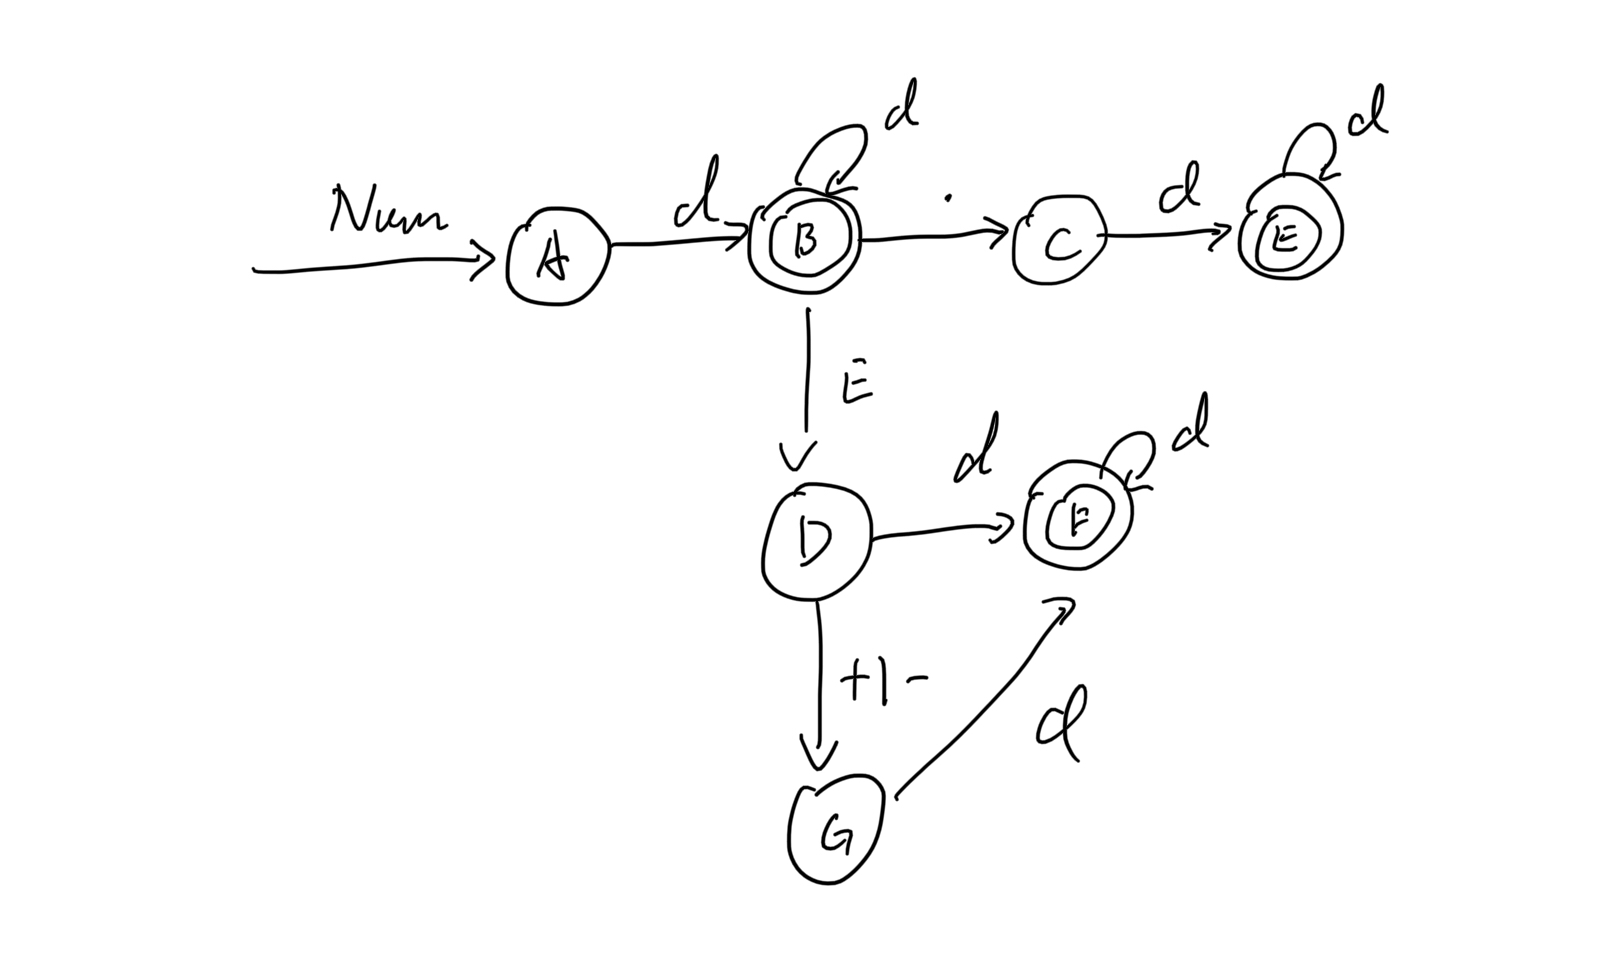 Num
A
d
B
d
.
C
d
E
d
E
D
d
F
d
+|-
G
d